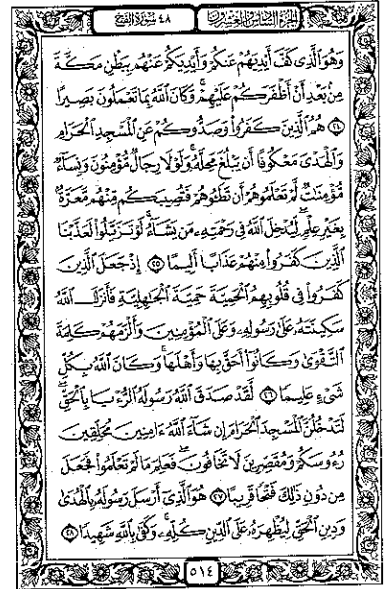 الجزء السادس والعشرون
٤٨ سورة الفتح
وَهُوَ الَّذِي كَفَّ أَيْدِيَهُمْ عَنكُمْ وَأَيْدِيَكُمْ عَنْهُم بِبَطْنِ مَكَّةَ
مِنْ بَعْدِ أَنْ أَظْفَرَكُمْ عَلَيْهِمْ وَكَانَ اللَّهُ بِمَا تَعْمَلُونَ بَصِيرًا
﴿٢٤﴾ هُمُ الَّذِينَ كَفَرُوا وَصَدُّوكُمْ عَنِ الْمَسْجِدِ الْحَرَامِ
وَالْهَدْيَ مَعْكُوفًا أَن يَبْلُغَ مَحِلَّهُ وَلَوْلَا رِجَالٌ مُّؤْمِنُونَ وَنِسَاءٌ
مُّؤْمِنَاتٌ لَّمْ تَعْلَمُوهُمْ أَن تَطَئُوهُمْ فَتُصِيبَكُم مِّنْهُم مَّعَرَّةٌ
بِغَيْرِ عِلْمٍ لِّيُدْخِلَ اللَّهُ فِي رَحْمَتِهِ مَن يَشَاءُ لَوْ تَزَيَّلُوا لَعَذَّبْنَا
الَّذِينَ كَفَرُوا مِنْهُمْ عَذَابًا أَلِيمًا ﴿٢٥﴾ إِذْ جَعَلَ الَّذِينَ
كَفَرُوا فِي قُلُوبِهِمُ الْحَمِيَّةَ حَمِيَّةَ الْجَاهِلِيَّةِ فَأَنزَلَ اللَّهُ
سَكِينَتَهُ عَلَى رَسُولِهِ وَعَلَى الْمُؤْمِنِينَ وَأَلْزَمَهُمْ كَلِمَةَ
التَّقْوَى وَكَانُوا أَحَقَّ بِهَا وَأَهْلَهَا وَكَانَ اللَّهُ بِكُلِّ
شَيْءٍ عَلِيمًا ﴿٢٦﴾ لَّقَدْ صَدَقَ اللَّهُ رَسُولَهُ الرُّءْيَا بِالْحَقِّ
لَتَدْخُلُنَّ الْمَسْجِدَ الْحَرَامَ إِن شَاءَ اللَّهُ ءَامِنِينَ مُحَلِّقِينَ
رُءُوسَكُمْ وَمُقَصِّرِينَ لَا تَخَافُونَ فَعَلِمَ مَا لَمْ تَعْلَمُوا فَجَعَلَ
مِن دُونِ ذَلِكَ فَتْحًا قَرِيبًا ﴿٢٧﴾ هُوَ الَّذِي أَرْسَلَ رَسُولَهُ بِالْهُدَى
وَدِينِ الْحَقِّ لِيُظْهِرَهُ عَلَى الدِّينِ كُلِّهِ وَكَفَى بِاللَّهِ شَهِيدًا ﴿٢٨﴾
٥١٤